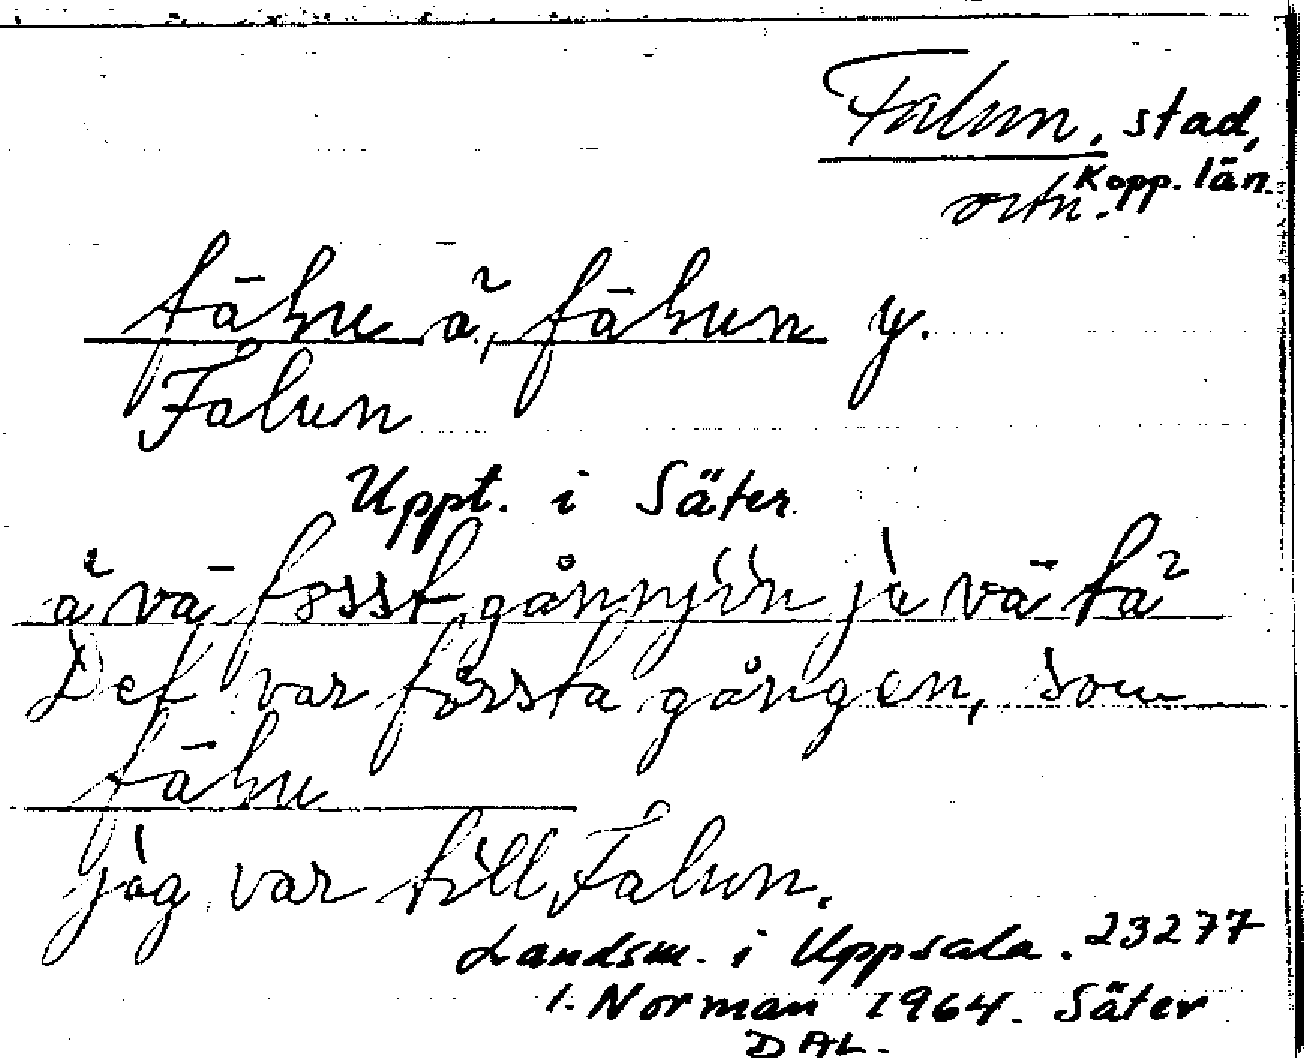 Falun, stad,
Kopp. län.
ortn.
fālu ä̆, fālun y.
Falun
Uppt. i Säter
ä̆ vā fosst gånnjin ja vā ta
Det var första gången, som
fālu
jag var till Falun.
Landsm. i Uppsala. 23277
I. Norman 1964. Säter
DAL.